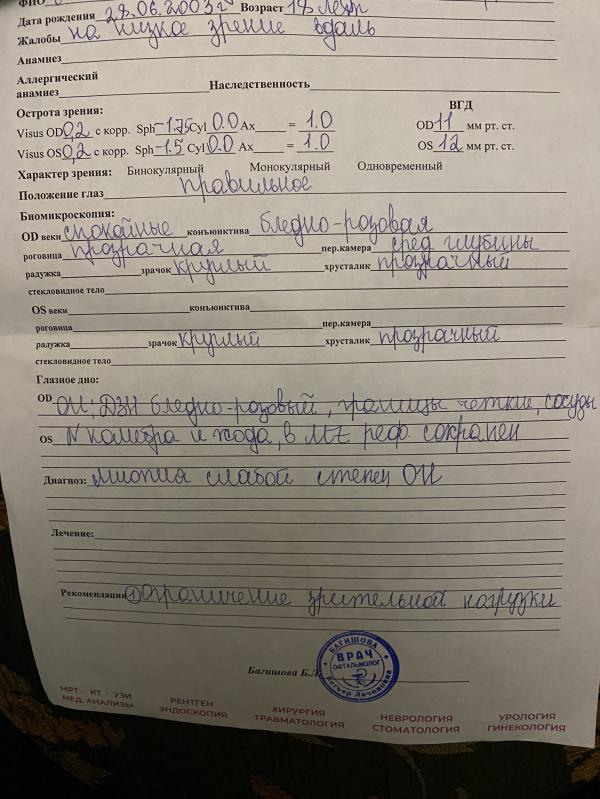 ФИО
Дата рождения 28.06.2003г Возраст 18 лет
Жалобы на низкое зрение вдаль
Анамнез
Аллергический
анамнез Наследственность
Острота зрения: ВГД
Visus OD 0,2 с корр. Sph -1.75 Cyl 0.0 Ax = 1.0 OD 11 мм рт. ст.
Visus OS 0,2 с корр. Sph -1.5 Cyl 0.0 Ax = 1.0 OS 12 мм рт. ст.
Характер зрения: Бинокулярный Монокулярный Одновременный
Положение глаз правильное
Биомикроскопия:
OD веки спокойные конъюнктива бледно-розовая
роговица прозрачная пер.камера сред глубины
радужка зрачок круглый хрусталик прозрачный
стекловидное тело
OS веки конъюнктива
роговица пер.камера
радужка зрачок круглый хрусталик прозрачный
стекловидное тело
Глазное дно:
OD ОИ; ДЗН бледно-розовый, границы четкие, сосуды
OS N калибра и хода, в MZ реф. сохранен
Диагноз: миопия слабой степен ОИ
Лечение:
Рекомендации ① Ограничение зрительной нагрузки
Багишова Б.Л.
БАГИШОВА
ВРАЧ
ОФТАЛЬМОЛОГ
МРТ - КТ - УЗИ РЕНТГЕН ХИРУРГИЯ НЕВРОЛОГИЯ УРОЛОГИЯ
МЕД. АНАЛИЗЫ ЭНДОСКОПИЯ ТРАВМАТОЛОГИЯ СТОМАТОЛОГИЯ ГИНЕКОЛОГИЯ